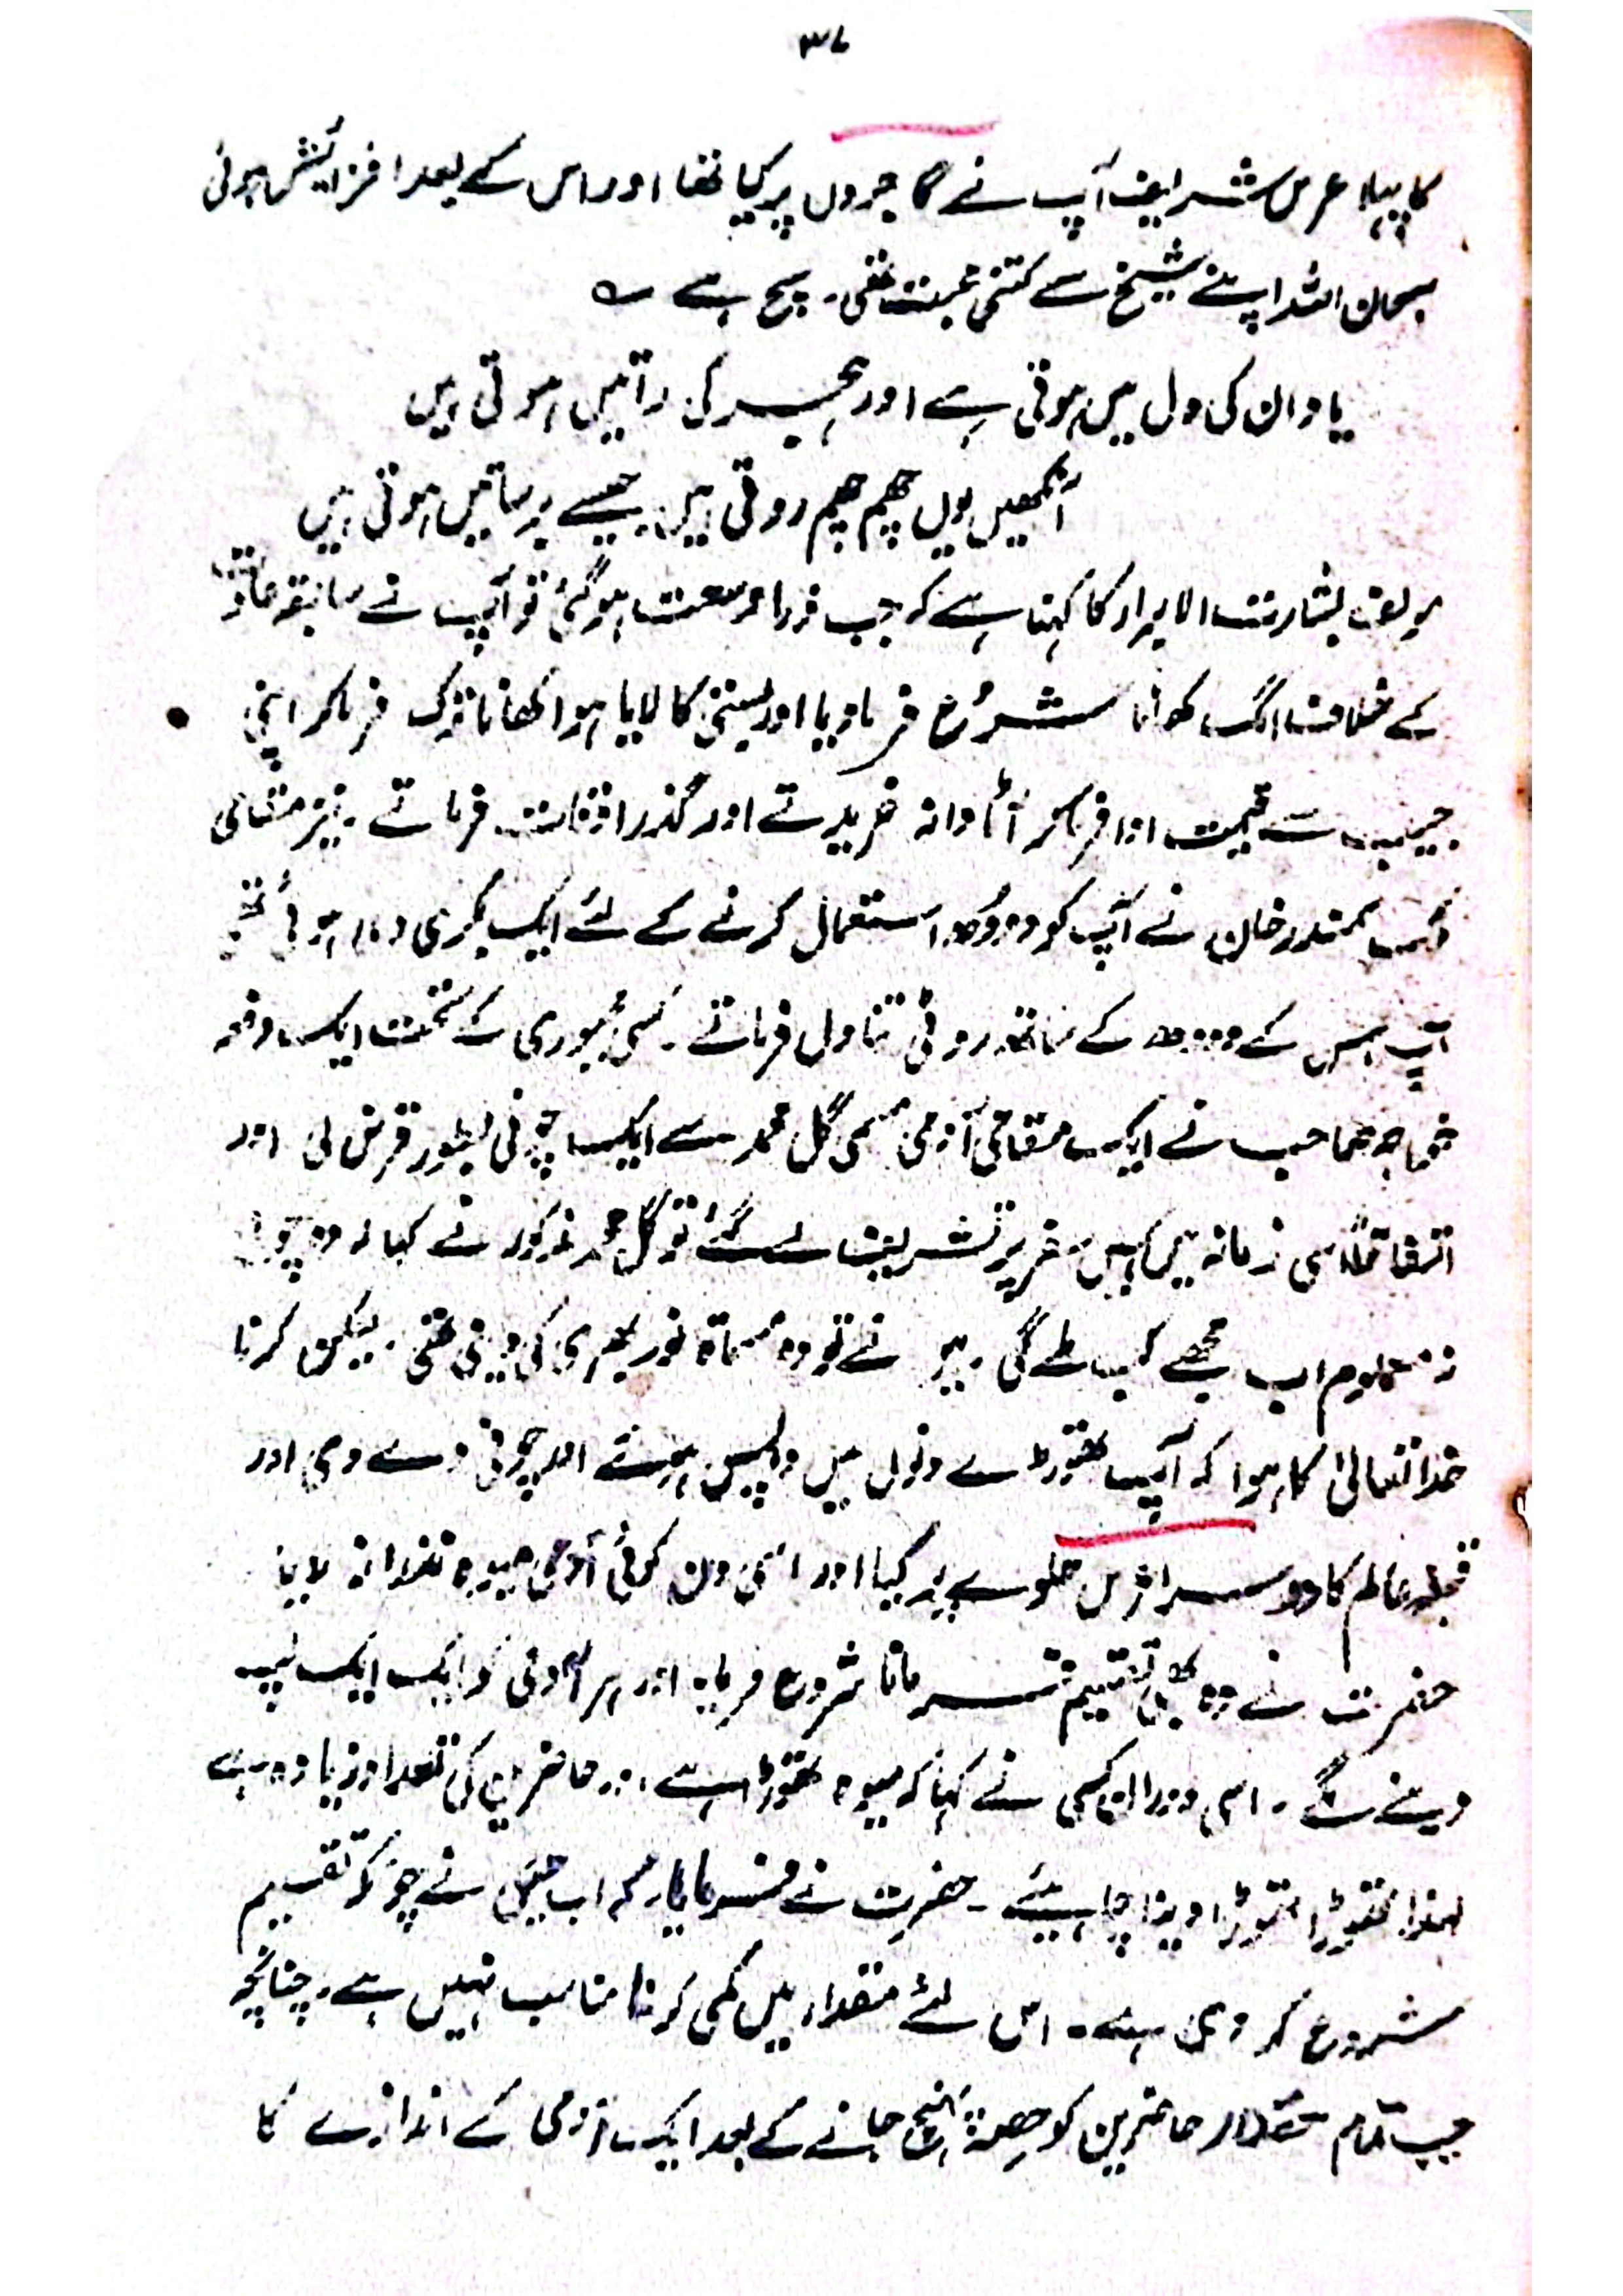 ۳۷
کا پہلا عرس شریف آپ نے گاجروں پر کیا تھا اور اس کے بعد افزائش ہوئی
سبحان اللہ اپنے شیخ سے کتنی محبت تھی۔ سچ ہے ؎
یاد ان کی دل میں ہوتی ہے اور ہجر کی راتیں ہوتی ہیں
آنکھیں یوں چھم چھم روتی ہیں جیسے برساتیں ہوتی ہیں
مولف بشارت الابرار کا کہنا ہے کہ جب ذرا وسعت ہو گئی تو آپ نے سابقہ عادت
کے خلاف الگ کھانا شروع فرما دیا اور بستی کا لایا ہوا کھانا ترک فرما کر اپنی
جیب سے قیمت ادا فرما کر آٹا دانہ خریدتے اور گذر اوقات فرماتے۔ نیز مقامی
سمندر خان نے آپ کو دودھ استعمال کرنے کے لئے ایک بکری دی ہوئی تھی
آپ اس کے دودھ کے ساتھ روٹی تناول فرماتے۔ کسی مجبوری کے تحت ایک دفعہ
خواجہ صاحب نے ایک مقامی آدمی مسمی گل محمد سے ایک چونی بطور قرض لی اور
اتفاقاً اسی زمانہ میں کہیں سفر پر تشریف لے گئے تو گل محمد مذکور نے کہا کہ وہ چونی
نہ معلوم اب مجھے کب ملے گی۔ میں نے تو وہ مسماۃ نور بھری کی دینی تھی۔ لیکن کرنا
خدا تعالیٰ کا ہوا کہ آپ تھوڑے دنوں میں واپس آئے اور چونی دے دی اور
قبلہ عالم کا دوسرا عرس حلوے پر کیا اور اسی دن کوئی آدمی میوہ نذرانہ لایا
حضرت نے وہ بھی تقسیم فرمانا شروع فرمایا اور ہر آدمی کو ایک ایک لپ
دینے لگے۔ اسی دوران کسی نے کہا کہ میوہ تھوڑا ہے اور حاضرین کی تعداد زیادہ ہے
لہذا تھوڑا تھوڑا دینا چاہیئے۔ حضرت نے فرمایا کہ اب جیسی نے چونکہ تقسیم
شروع کر دی ہے۔ اس لئے مقدار میں کمی کرنا مناسب نہیں ہے۔ چنانچہ
جب تمام حقدار حاضرین کو حصہ پہنچ جانے کے بعد ایک آدمی کے اندازے کا